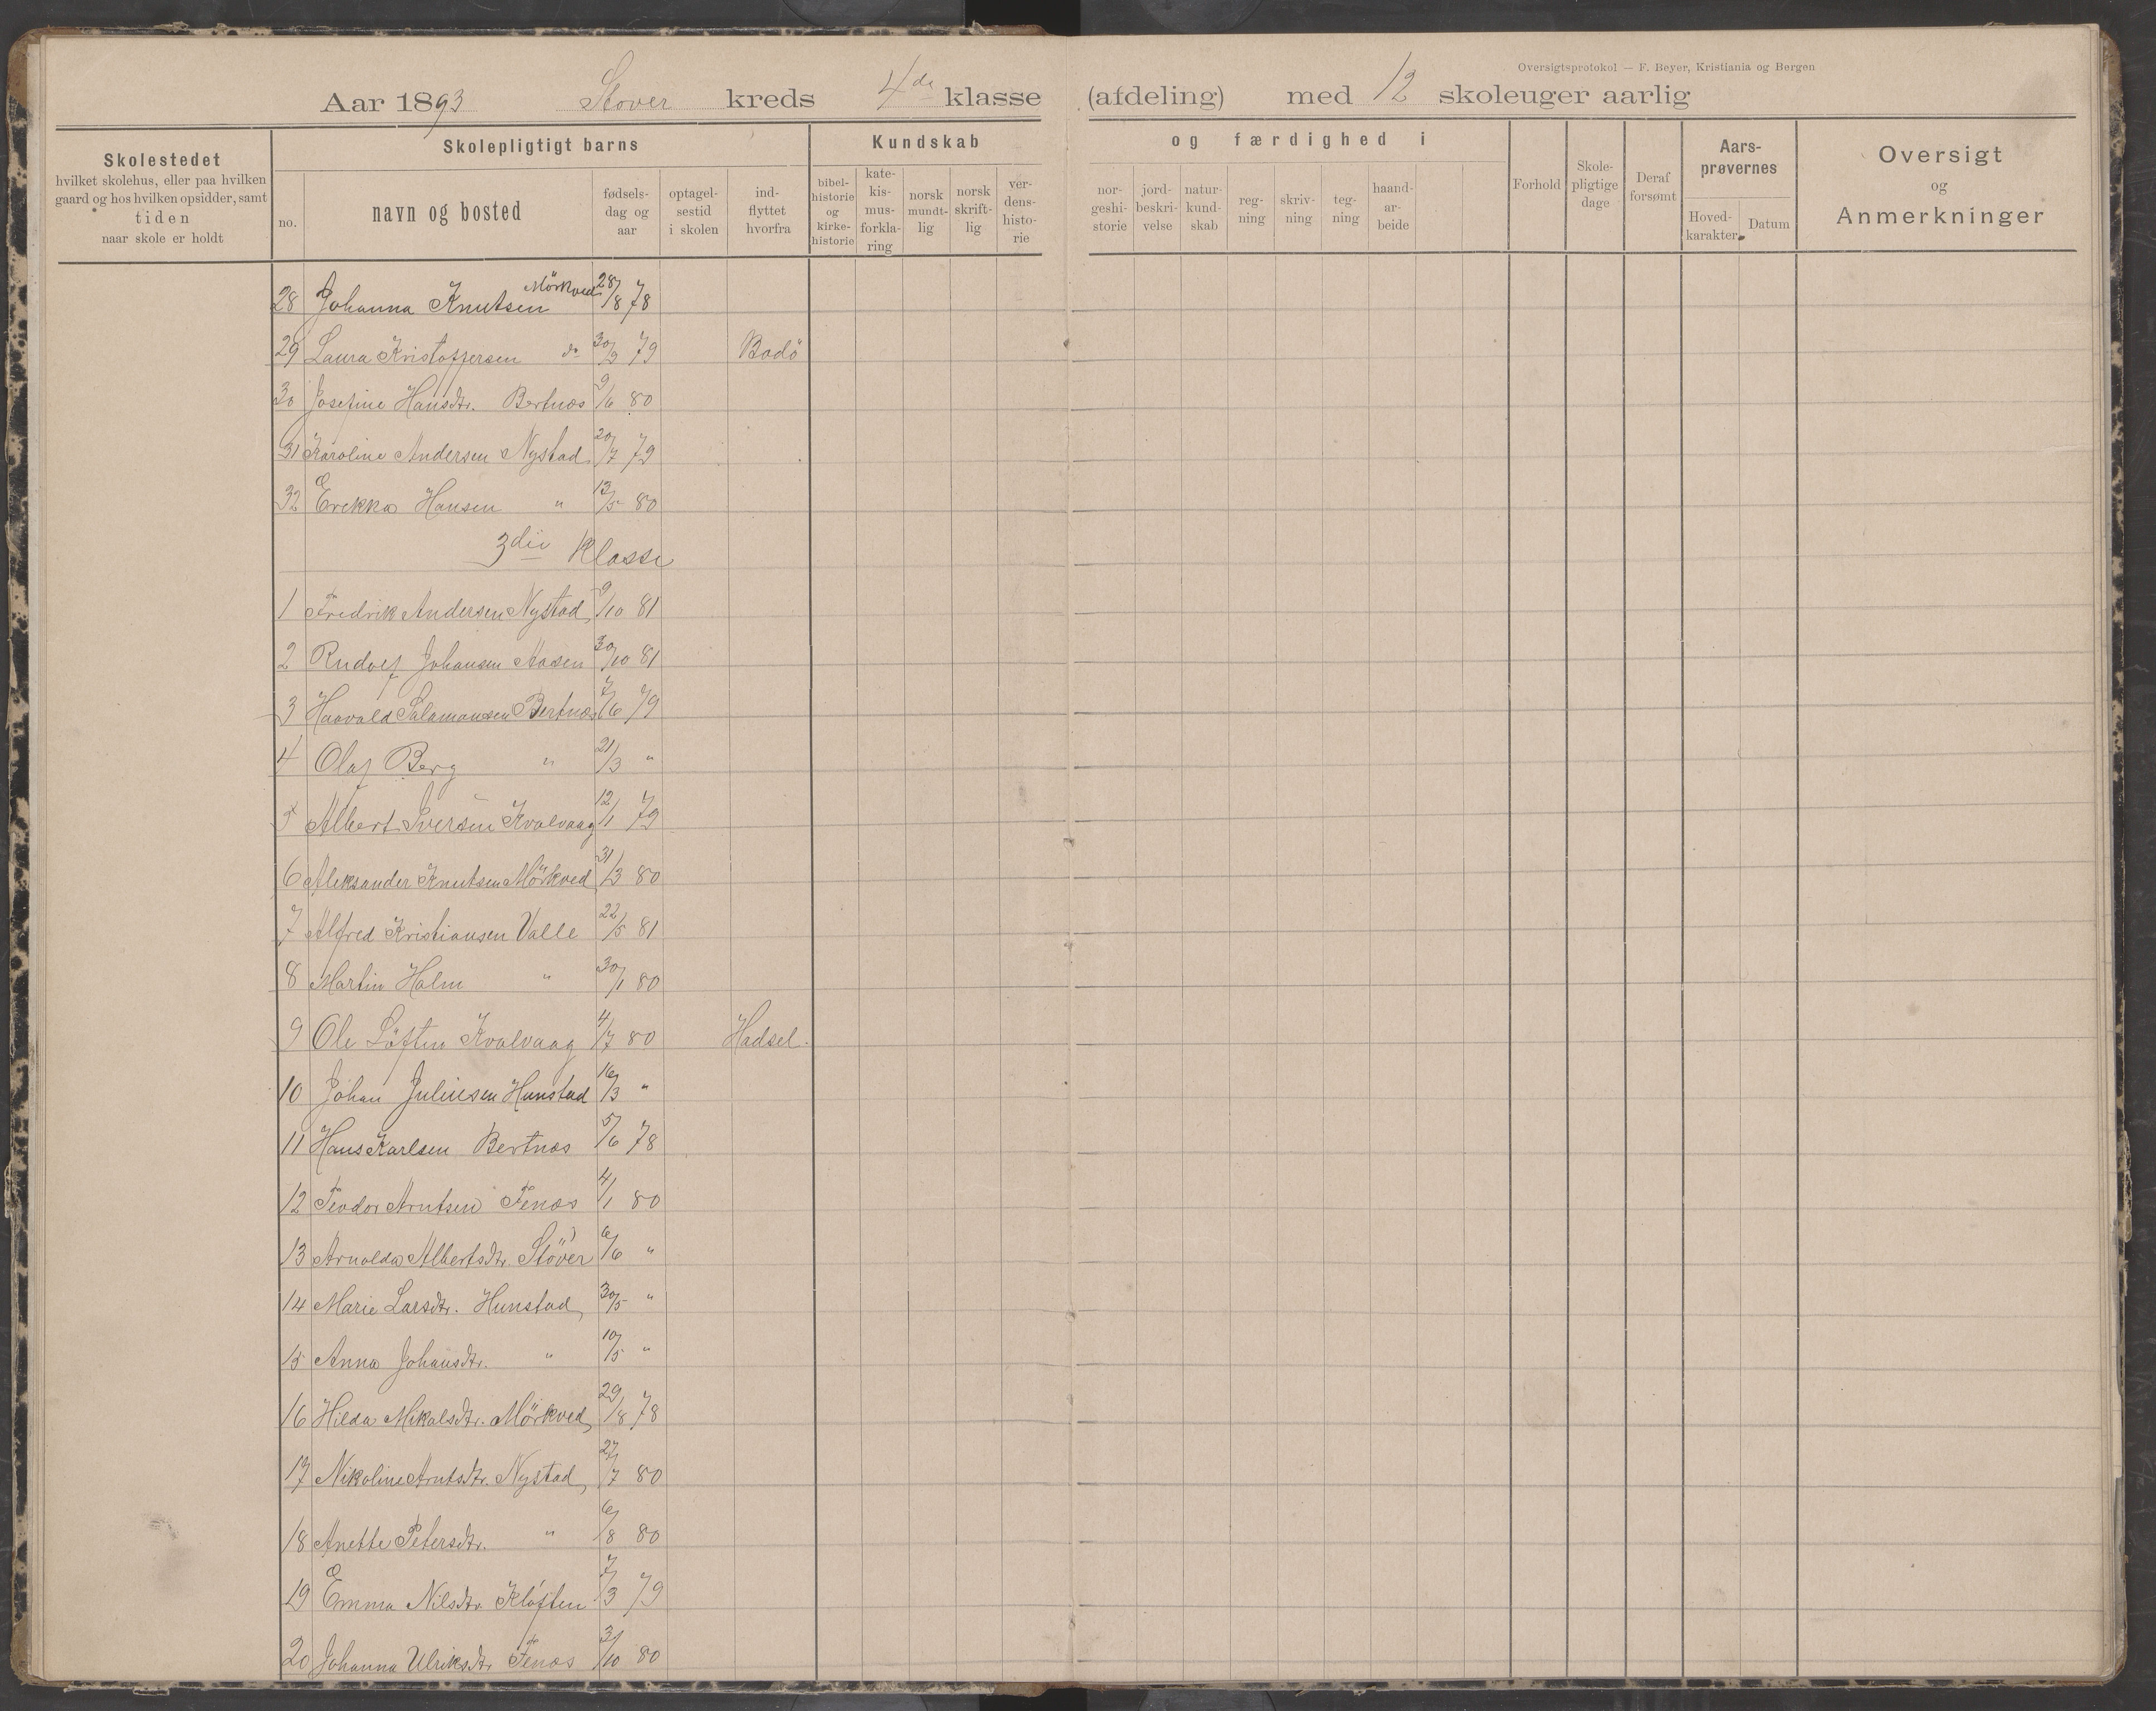 Oversigtsprotokol — F. Beyer, Kristiania og Bergen
Aar 1893 Stover kreds 4de klasse (afdeling) med 12 skoleuger aarlig
Skolestedet
hvilket skolehus, eller paa hvilken
gaard og hos hvilken opsidder, samt
tiden
naar skole er holdt
Skolepligtigt barns
no.
navn og bosted
fødsels-
dag og
aar
optagel-
sestid
i skolen
ind-
flyttet
hvorfra
Kundskab og færdighed i
bibel-
historie
og
kirke-
historie
kate-
kis-
mus-
forkla-
ring
norsk
mundt-
lig
norsk
skrift-
lig
ver-
dens-
histo-
rie
nor-
geshi-
storie
jord-
beskri-
velse
natur-
kund-
skab
reg-
ning
skriv-
ning
teg-
ning
haand-
ar-
beide
Forhold
Skole-
pligtige
dage
Deraf
forsømt
Aars-
prøvernes
Hoved-
karakter
Datum
Oversigt
og
Anmerkninger
28 Johanna Knutsen Mörkved 28/8 78
29 Laura Kristoffersen do 30/9 79 Bodö
30 Josefine Hansdtr. Bertnæs 9/6 80
31 Karoline Andersen Nystad 20/7 79
32 Erekka Hansen " 13/5 80
3die Klasse
1 Fredrik Andersen Nystad 9/10 81
2 Rudolf Johansen Aasen 30/10 81
3 Haavald Salamonsen Bertnæs 7/6 79
4 Olaf Berg " 21/3 "
5 Albert Iversen Kvalvaag 12/1 79
6 Aleksander Knutsen Mörkved 31/3 80
7 Alfred Kristiansen Valle 22/5 81
8 Martin Holm " 30/1 80
9 Ole Löften Kvalvaag 4/7 80 Hadsel.
10 Johan Juliusen Hunstad 16/3 "
11 Hans Karlsen Bertnæs 5/6 78
12 Teodor Arntsen Fenæs 4/1 80
13 Arnolda Albertsdtr. Stöver 6/6 "
14 Marie Larsdtr. Hunstad 30/5 "
15 Anna Johansdtr. " 10/5 "
16 Hilda Mikalsdtr. Mörkved 29/8 78
17 Nikoline Arntsdtr. Nystad 27/7 80
18 Anette Petersdtr. " 6/8 80
19 Emma Nilsdtr. Klöften 7/3 79
20 Johanna Ulriksdtr Fenæs 3/10 80